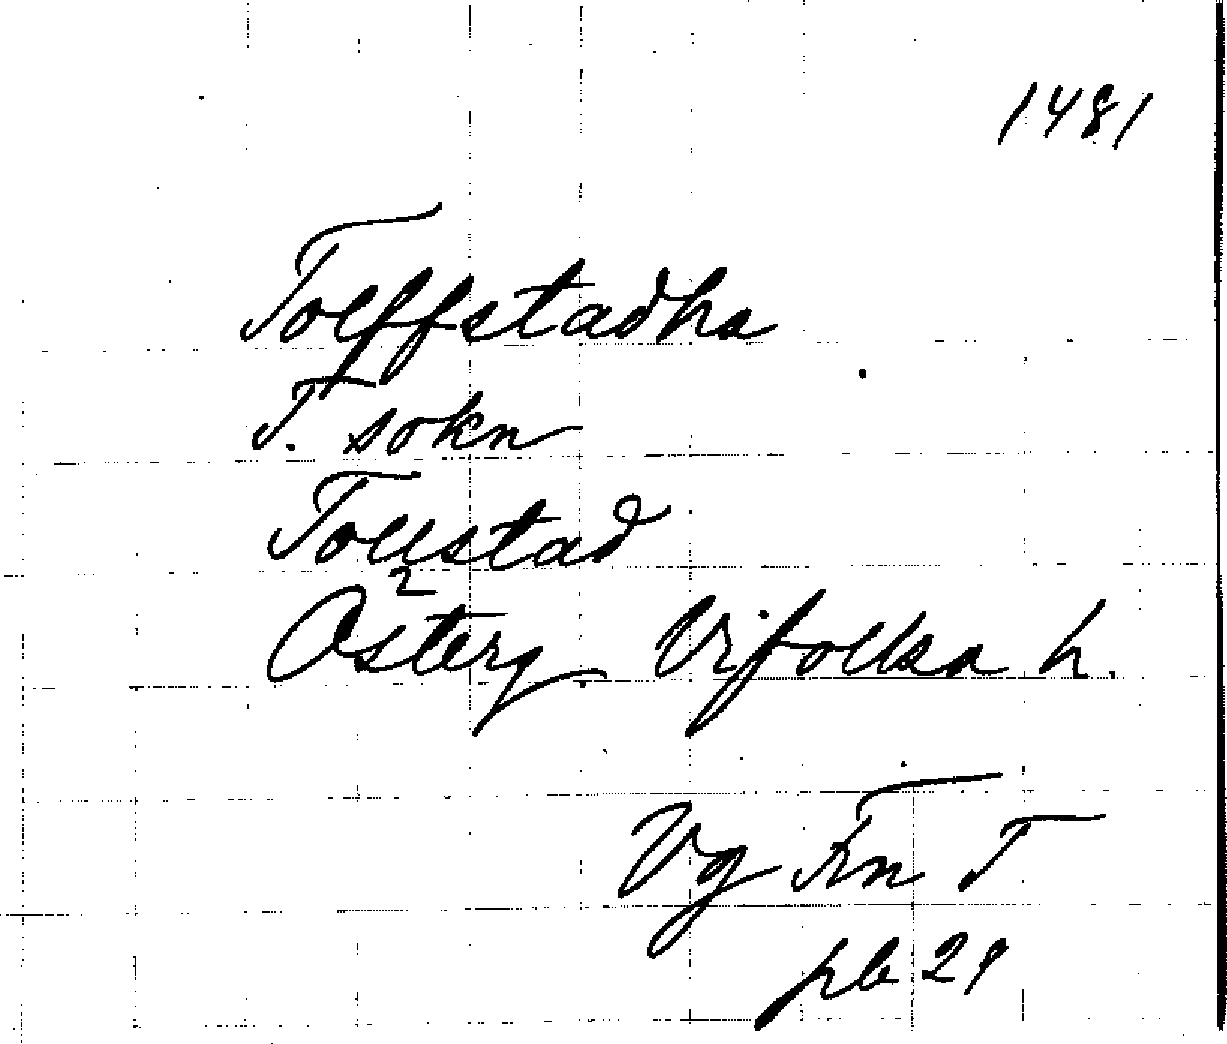 1481
Tolffstadha
T. sokn
Tollstad
Österg. Vifolka h.
Vg Fn T
pb 29